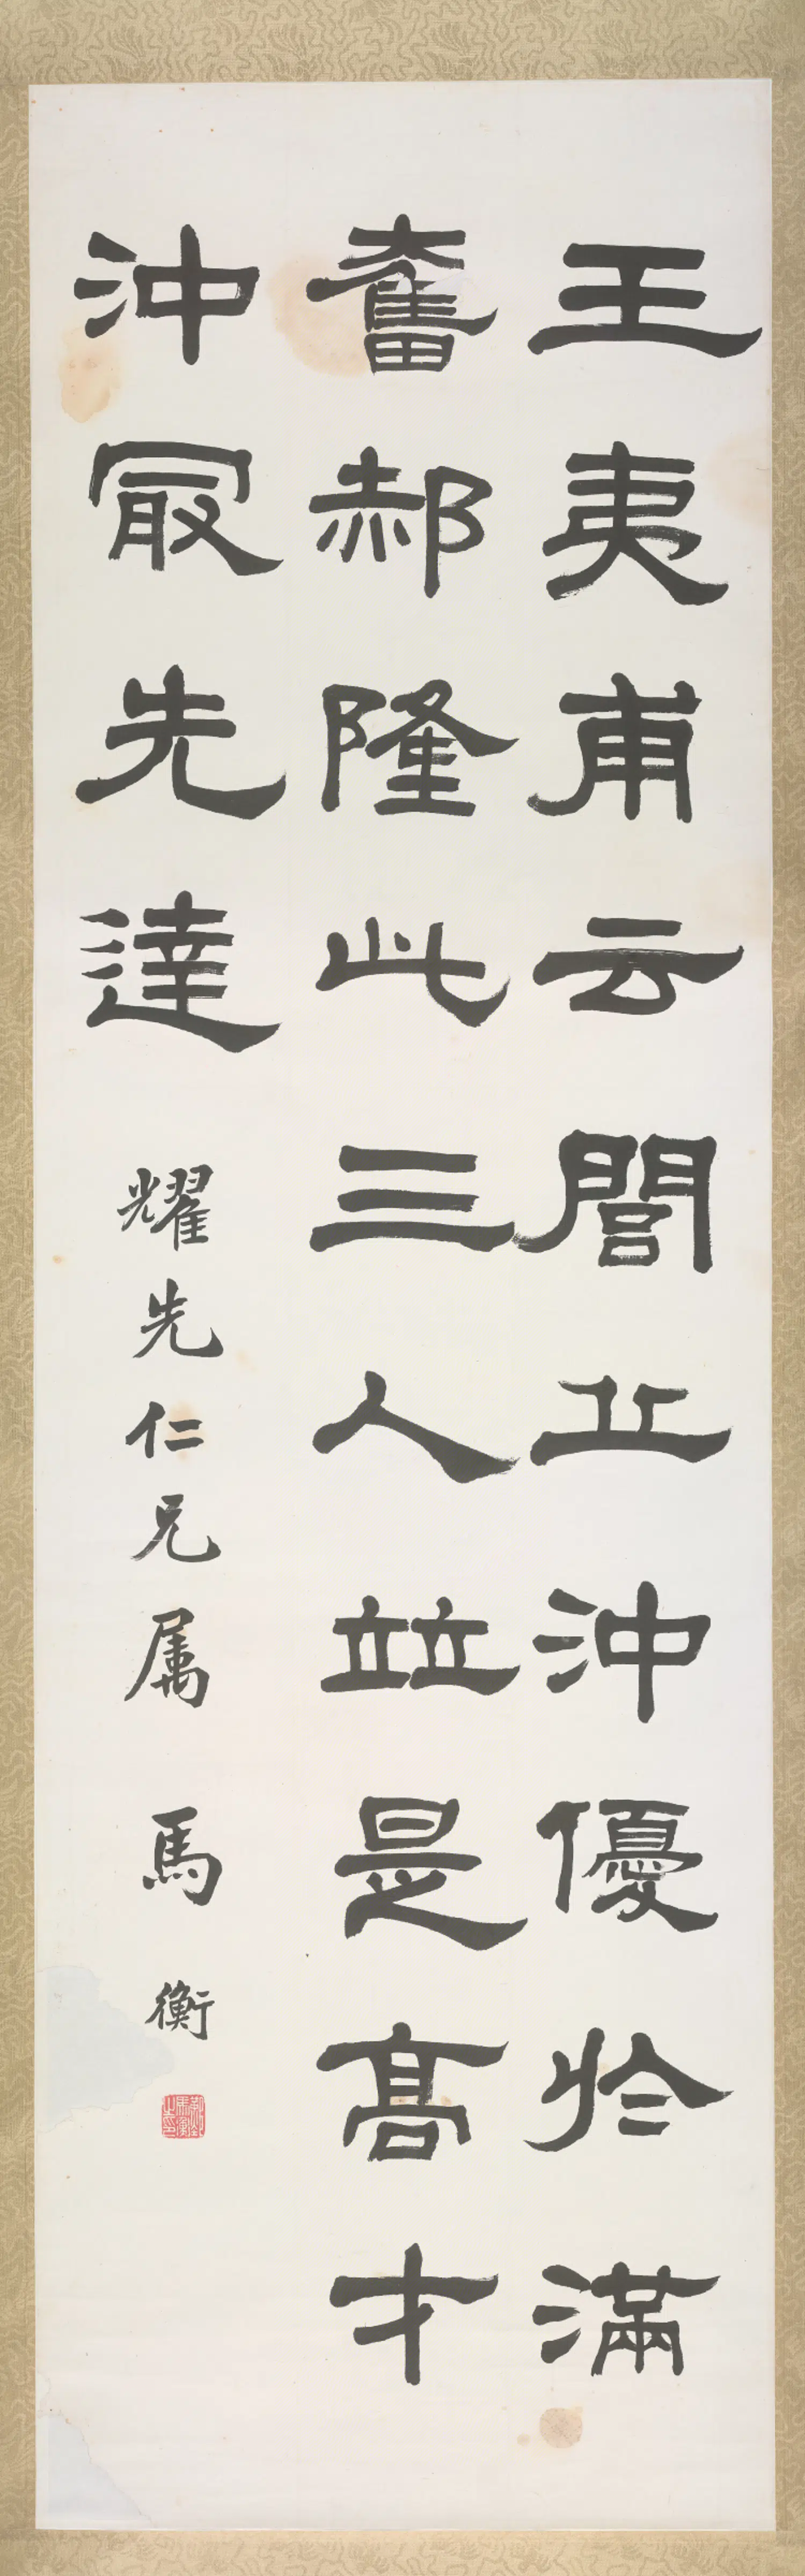 王夷甫云閭丘沖優於滿
奮郝隆此三人竝是髙才
沖冣先達 耀先仁兄属 馬衡